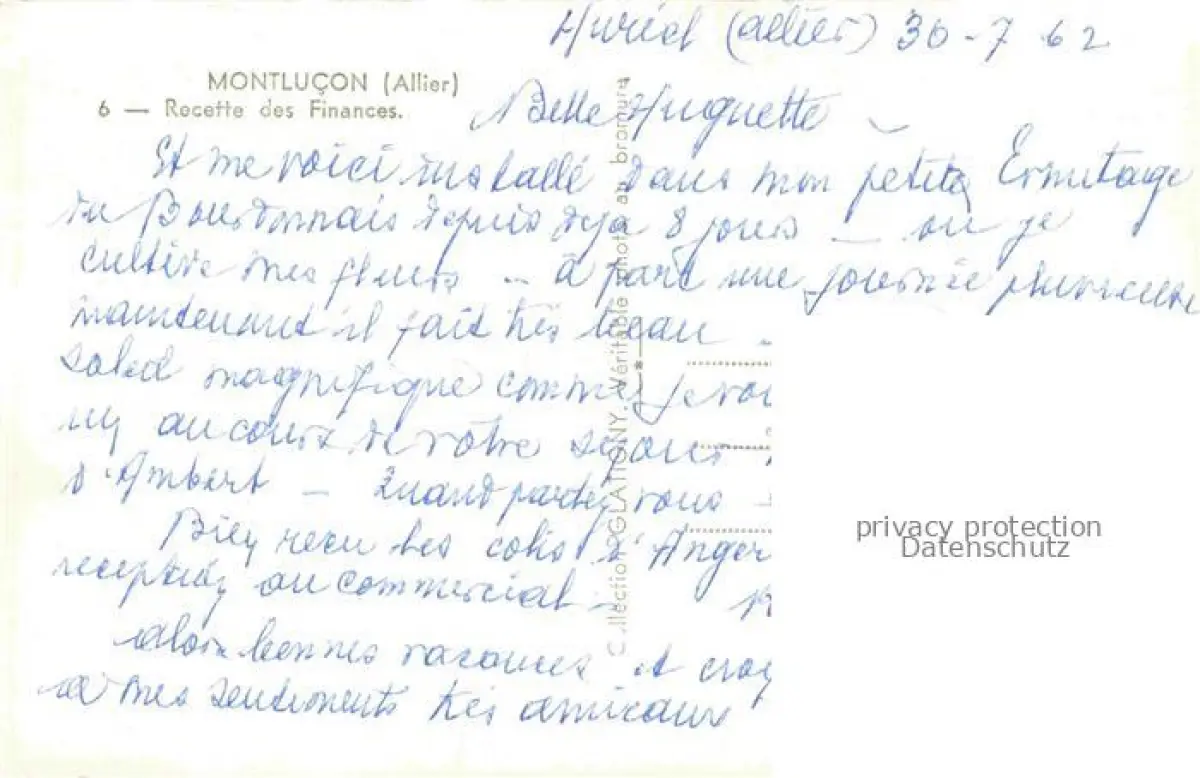 Huriel (allier) 30-7 62
MONTLUÇON (Allier)
6 — Recette des Finances.
Belle Huguette
Et me voici installé dans mon petit Ermitage
du Bourbonnais depuis deja 8 jours — ou je
cultive mes fleurs — à part une journée pluvieuse
maintenant il fait très beau
soleil magnifique comme
au cours de votre sejour
d'Ambert — Quand partez vous
Bien reçu les colis d'Anger
au commercial —
alors bonnes vacances et croy
à mes sentiments très amicaux
Collection GLATIGNY. Véritable photo au bromure
privacy protection
Datenschutz